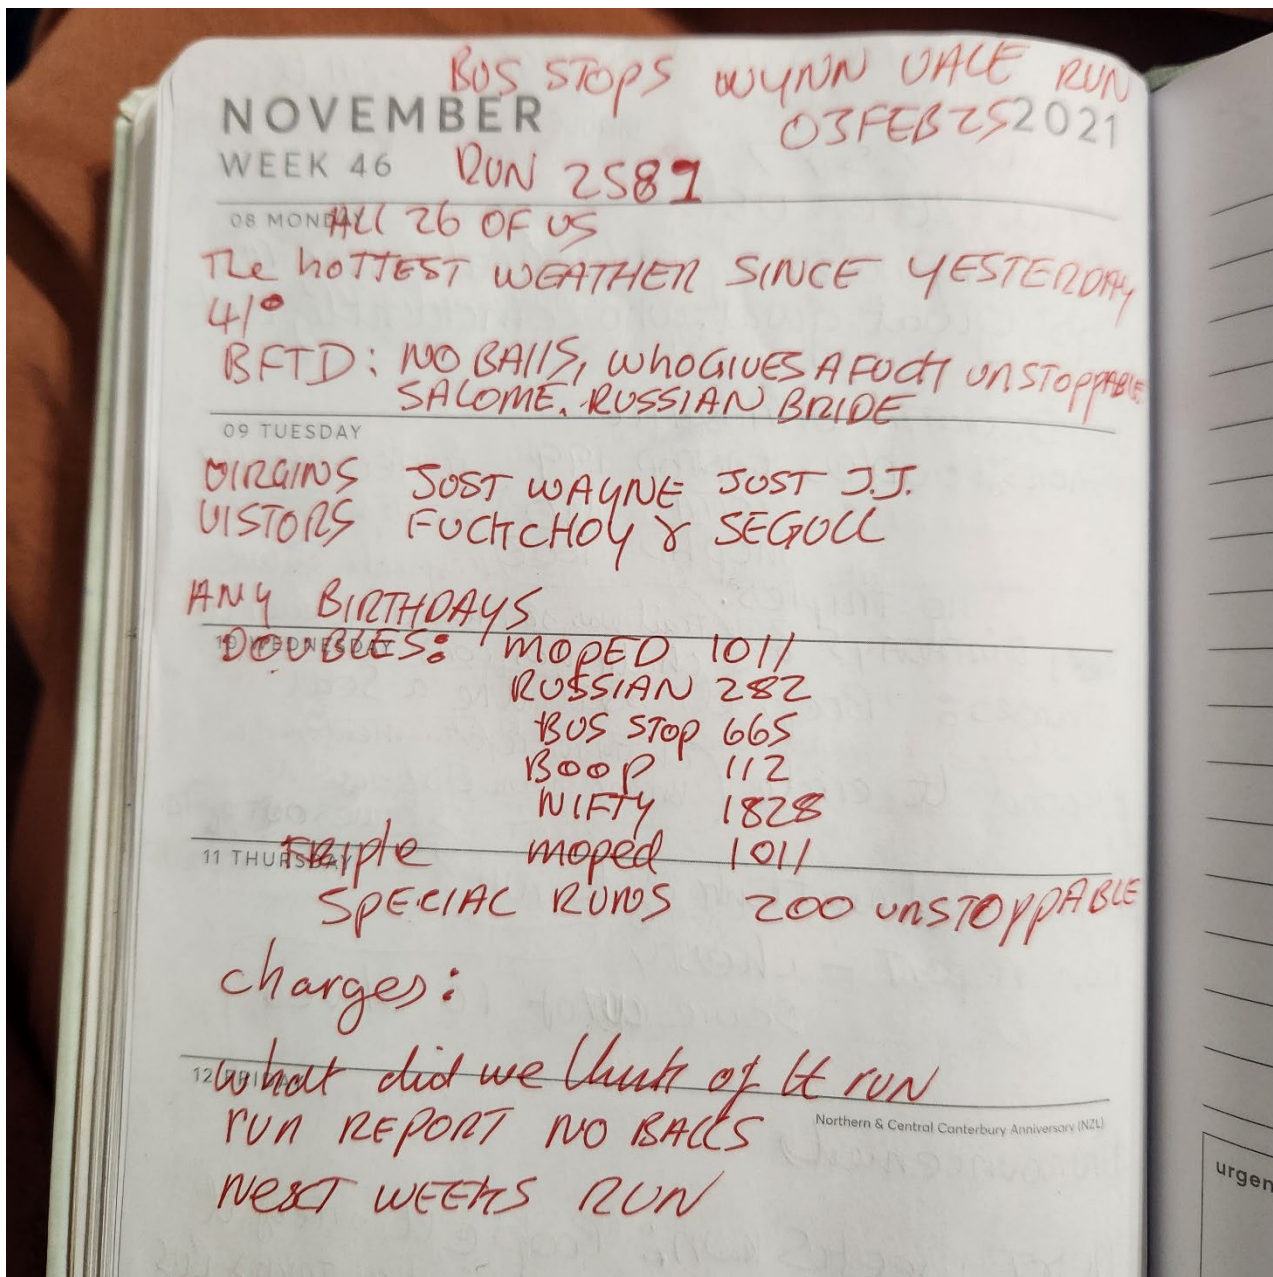 BUS STOPS WYNN VALE RUN
NOVEMBER 03FEB25 2021
WEEK 46 RUN 2589
08 MONDAY ALL 26 OF US
The hOTTEST WEATHER SINCE YESTERDAY
41°
BFTD: NO BAllS, WhOGIVES A FUCK UNSTOPPABLE
SALOME. RUSSIAN BRIDE
09 TUESDAY
VIRGINS JUST WAYNE JUST J.J.
VISTORS FUCKCHOY & SEGULL
ANY BIRTHDAYS
10 WEDNESDAY
DOUBLES: MOPED 1011
RUSSIAN 282
BUS STOP 665
BOOP 112
NIFTY 1828
11 THURSDAY
TRIPle moped 1011
SPECIAL RUNS 200 UNSTOPPABLE
charges:
12 FRIDAY
what did we think of tt run
run REPORT NO BALLS
Northern & Central Canterbury Anniversary (NZL)
NexT WEEKS RUN
urgen